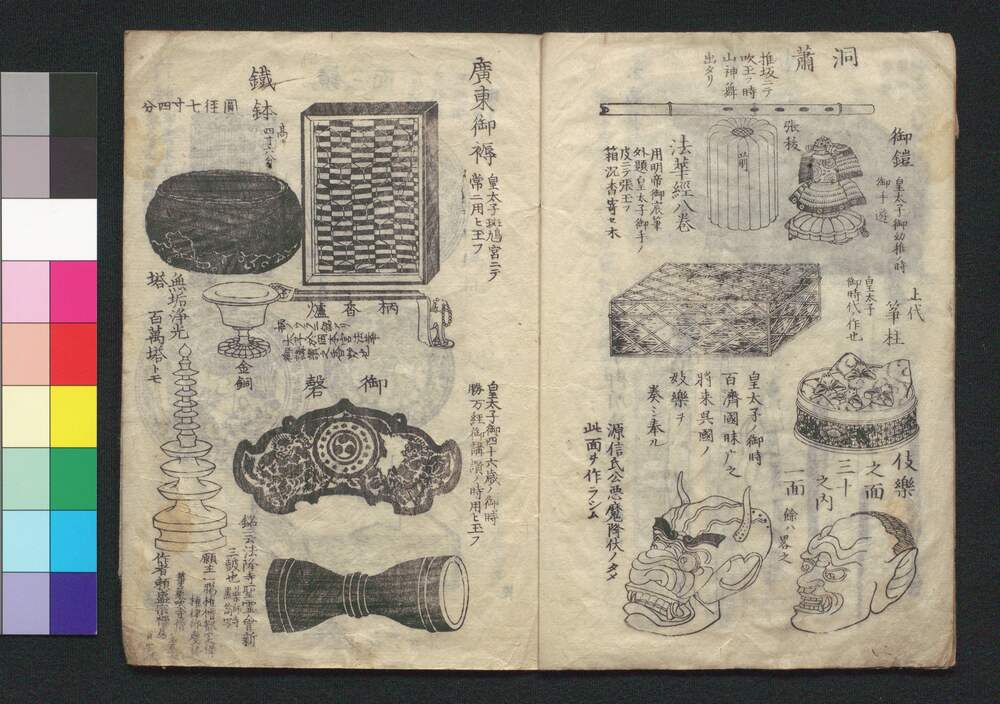 洞簫
推坂ニテ
吹玉フ時
山神舞
出タリ
御鎧
皇太子御幼推ノ時
御十遊
張枝
法華經八巻
用明帝御宸筆
外題皇太子御手ノ
皮ニテ張玉フ
箱沉香寄セ木
上代
箏柱
皇太子
御時代ノ作也
伎樂
之面
三十
之内
一面
餘ハ畧之
皇太子ノ御時
百濟國味广之
將来呉國ノ
妓樂ヲ
奏シ奉ル
源信氏公悪魔降伏ノタメ
此面ヲ作ラシム
廣東御褥
皇太子斑鳩宮ニテ
常ニ用ヒ玉フ
鐵鉢
高サ
四寸六分
圓徑七寸四分
柄香爐
金銅
御磬
皇太子御四十六歳ノ御時
勝万經御講讃ノ時用ヒ玉フ
無垢浄光
塔
百萬塔トモ
銘云法隆寺聖霊會新
三皷也
願主